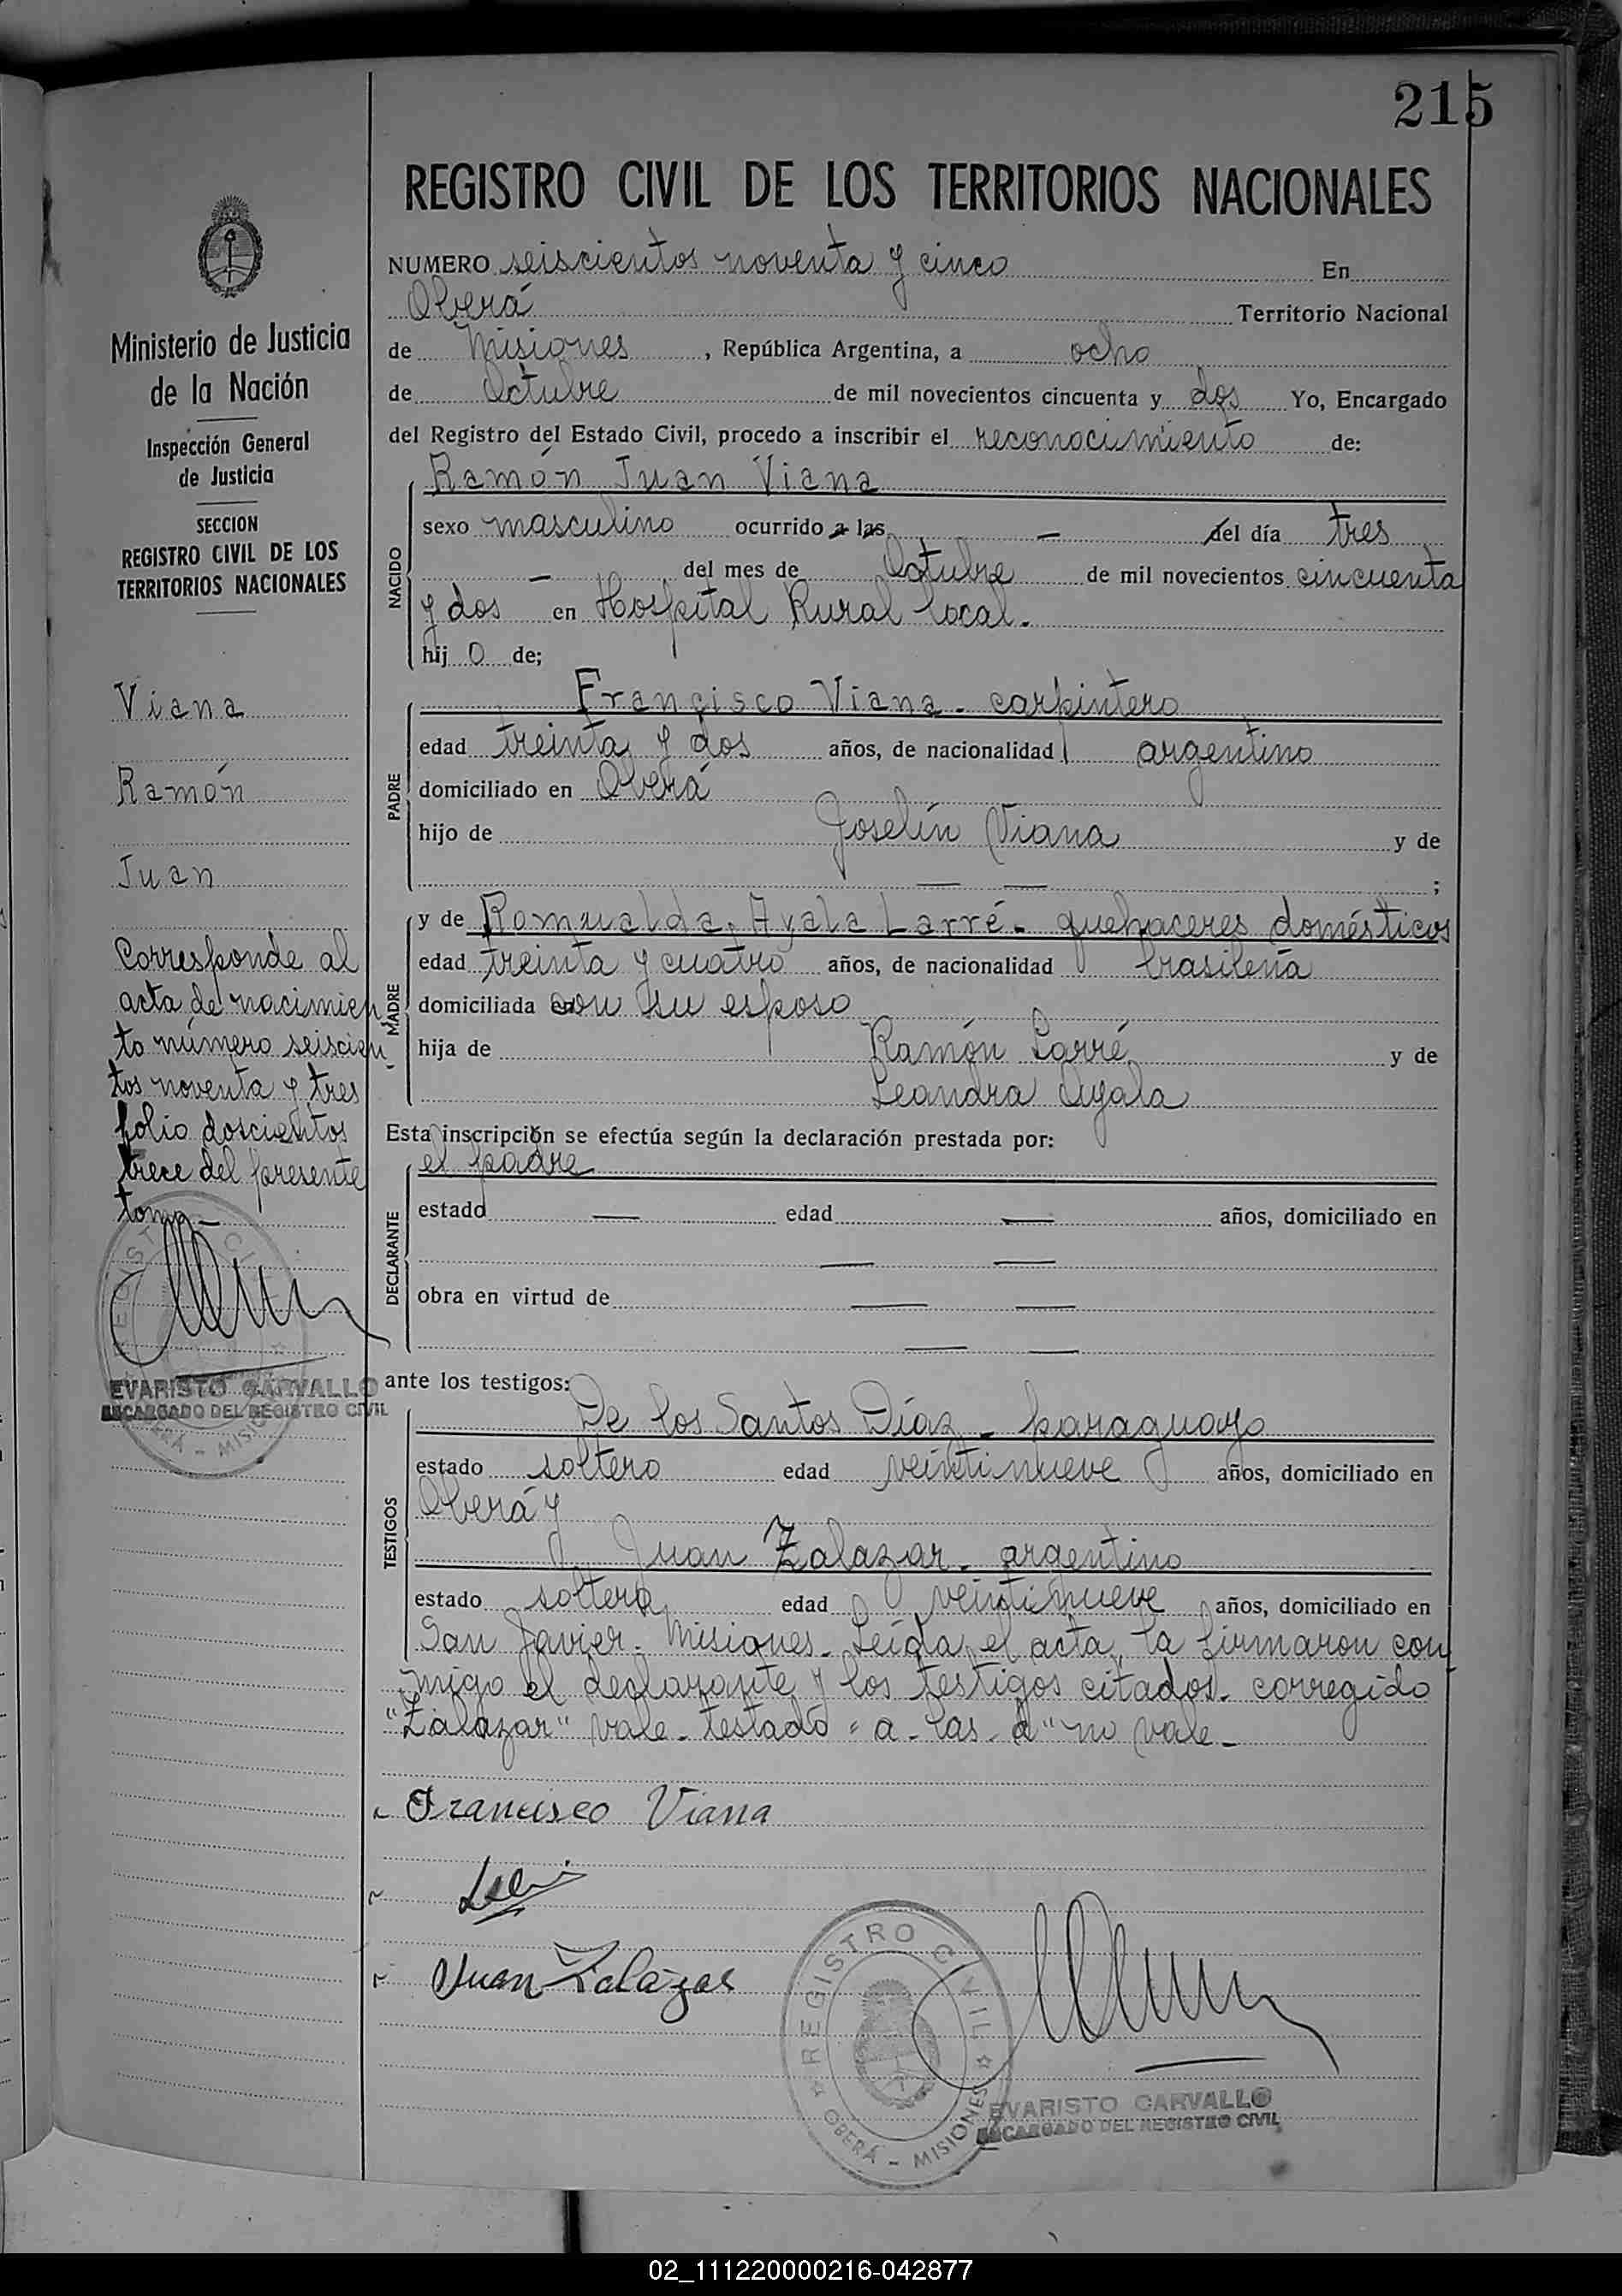 215
REGISTRO CIVIL DE LOS TERRITORIOS NACIONALES
Ministerio de Justicia
de la Nación
Inspección General
de Justicia
SECCION
REGISTRO CIVIL DE LOS
TERRITORIOS NACIONALES
Viana
Ramón
Juan
Corresponde al
acta de nacimien
to número seiscien
tos noventa y tres
folio doscientos
trece del presente
tomo-
REGISTRO CIVIL
OBERÁ - MISIONES
EVARISTO CARVALLO
ENCARGADO DEL REGISTRO CIVIL
NUMERO seiscientos noventa y cinco En
Oberá Territorio Nacional
de Misiones, República Argentina, a ocho
de Octubre de mil novecientos cincuenta y dos Yo, Encargado
del Registro del Estado Civil, procedo a inscribir el reconocimiento de:
NACIDO
Ramón Juan Viana
sexo masculino ocurrido a las — del día tres
— del mes de Octubre de mil novecientos cincuenta
y dos en Hospital Rural local.
hijo de;
PADRE
Francisco Viana - carpintero
edad treinta y dos años, de nacionalidad argentino
domiciliado en Oberá
hijo de Joselín Viana y de
— — ;
MADRE
y de Romualda Ayala Larré - quehaceres domésticos
edad treinta y cuatro años, de nacionalidad brasileña
domiciliada con su esposo
hija de Ramón Larré y de
Leandra Ayala
Esta inscripción se efectúa según la declaración prestada por:
DECLARANTE
el padre
estado — edad — años, domiciliado en
— —
obra en virtud de — —
— —
ante los testigos:
TESTIGOS
De los Santos Díaz - paraguayo
estado soltero edad veintinueve años, domiciliado en
Oberá y
Juan Zalazar - argentino
estado soltero edad veintinueve años, domiciliado en
San Javier - Misiones - Leída el acta, la firmaron con
migo el declarante y los testigos citados - corregido
"Zalazar" vale - testado "a - las - d" no vale -
Francisco Viana
Juan Zalazar
REGISTRO CIVIL
OBERÁ - MISIONES
EVARISTO CARVALLO
ENCARGADO DEL REGISTRO CIVIL
02_111220000216-042877